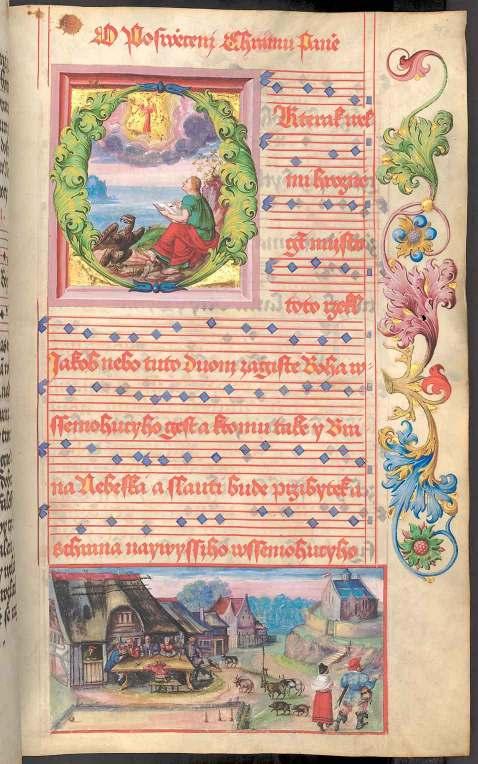 O Poswěcenj Chramu Paně
O
Kterak wel
mi hrozne
gt miesto
toto rzekl
Jakob nebo tuto duom zagiste Boha w=
ssemohucyho gest a ktomu take y Bra
na Nebeska a slauti bude przibytek a
chrama naywyssiho wssemohucyho